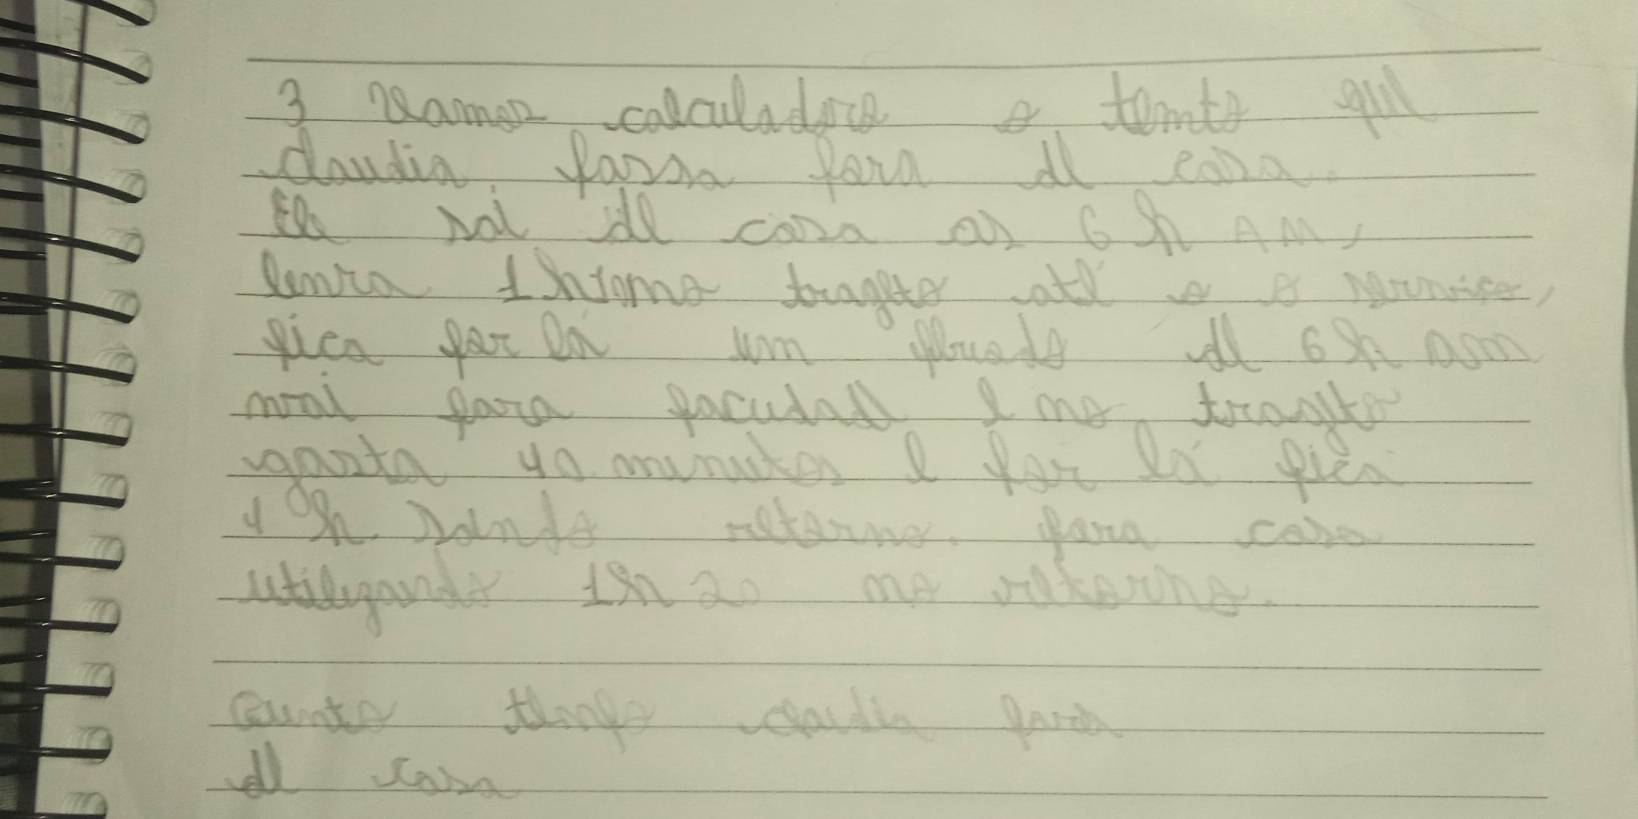 3 Vamos calculadora o temto que
claudia passa fora de casa.
Ela sai de casa as 6 h AM,
leva 1h no trageto até o o servico,
fica por lá um piriodo de 6 h
vai para facudade e no trageto
gasta 40 minutos e por lá fica
4 h. retorno para casa
utilizando 1h 20 no retorno.
Cunto tempo claudia fora
de casa